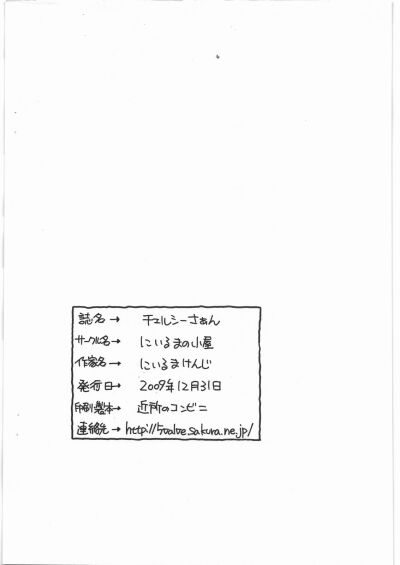 誌名→ チェルシーさぁん
サークル名→ にいるまの小屋
作家名→ にいるまけんじ
発行日→ 2009年12月31日
印刷製本→ 近所のコンビニ
連絡先→ http://5valve.sakura.ne.jp/